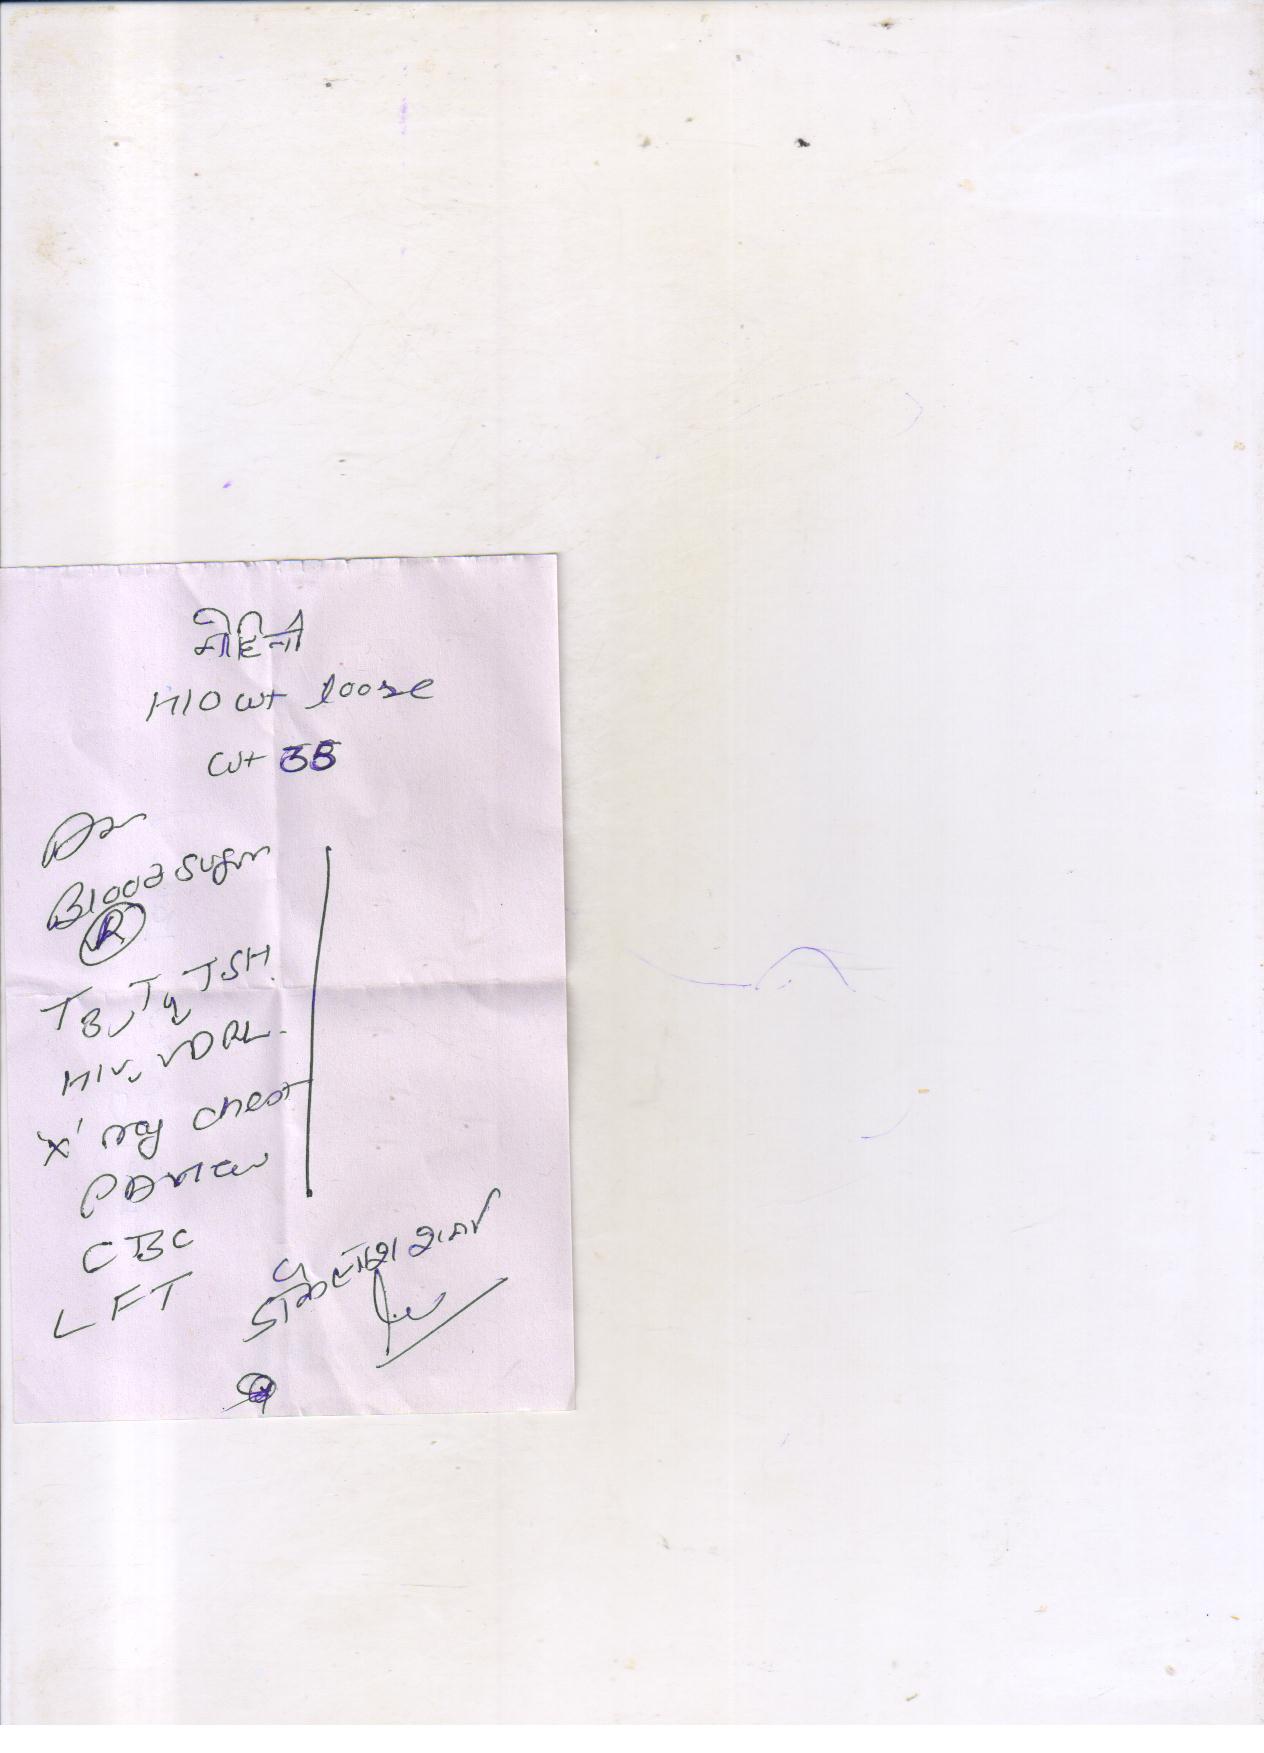 मोहिनी
H/O wt loose
wt 35
Blood Sugar
R
T3, T4 TSH
HIV, VDRL.
'X' ray chest
PA view
CBC
LFT